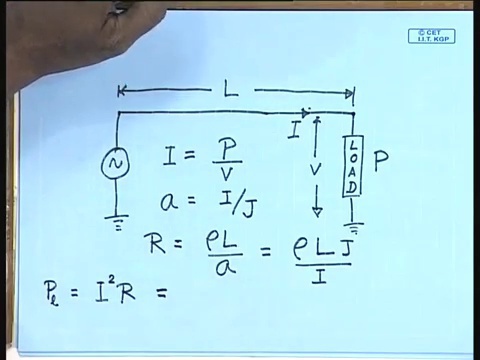 © CET
I.I.T. KGP
L
I
V
LOAD
P
~
I = P/V
a = I/J
R = ρL/a = ρLJ/I
Pℓ = I²R =